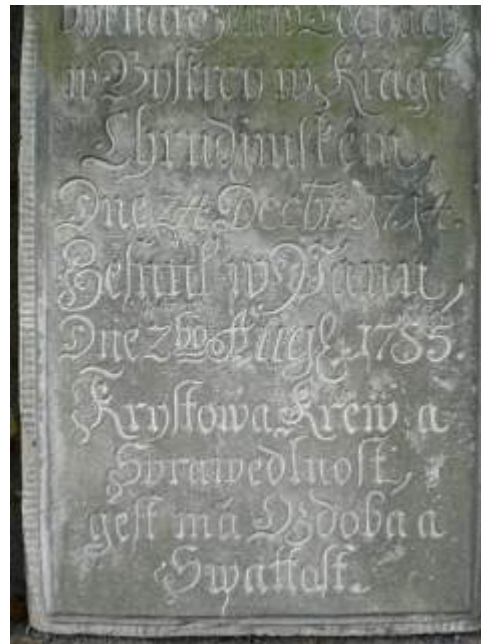 w Bystrey w Kragi
Chrudjmskem,
Dne 24. Decbr. 1714.
Zesnul w Panu,
Dne 2ho Aug. 1785.
Krystowa Krew a
Sprawedlnost,
gest má Ozdoba a
Swatost.